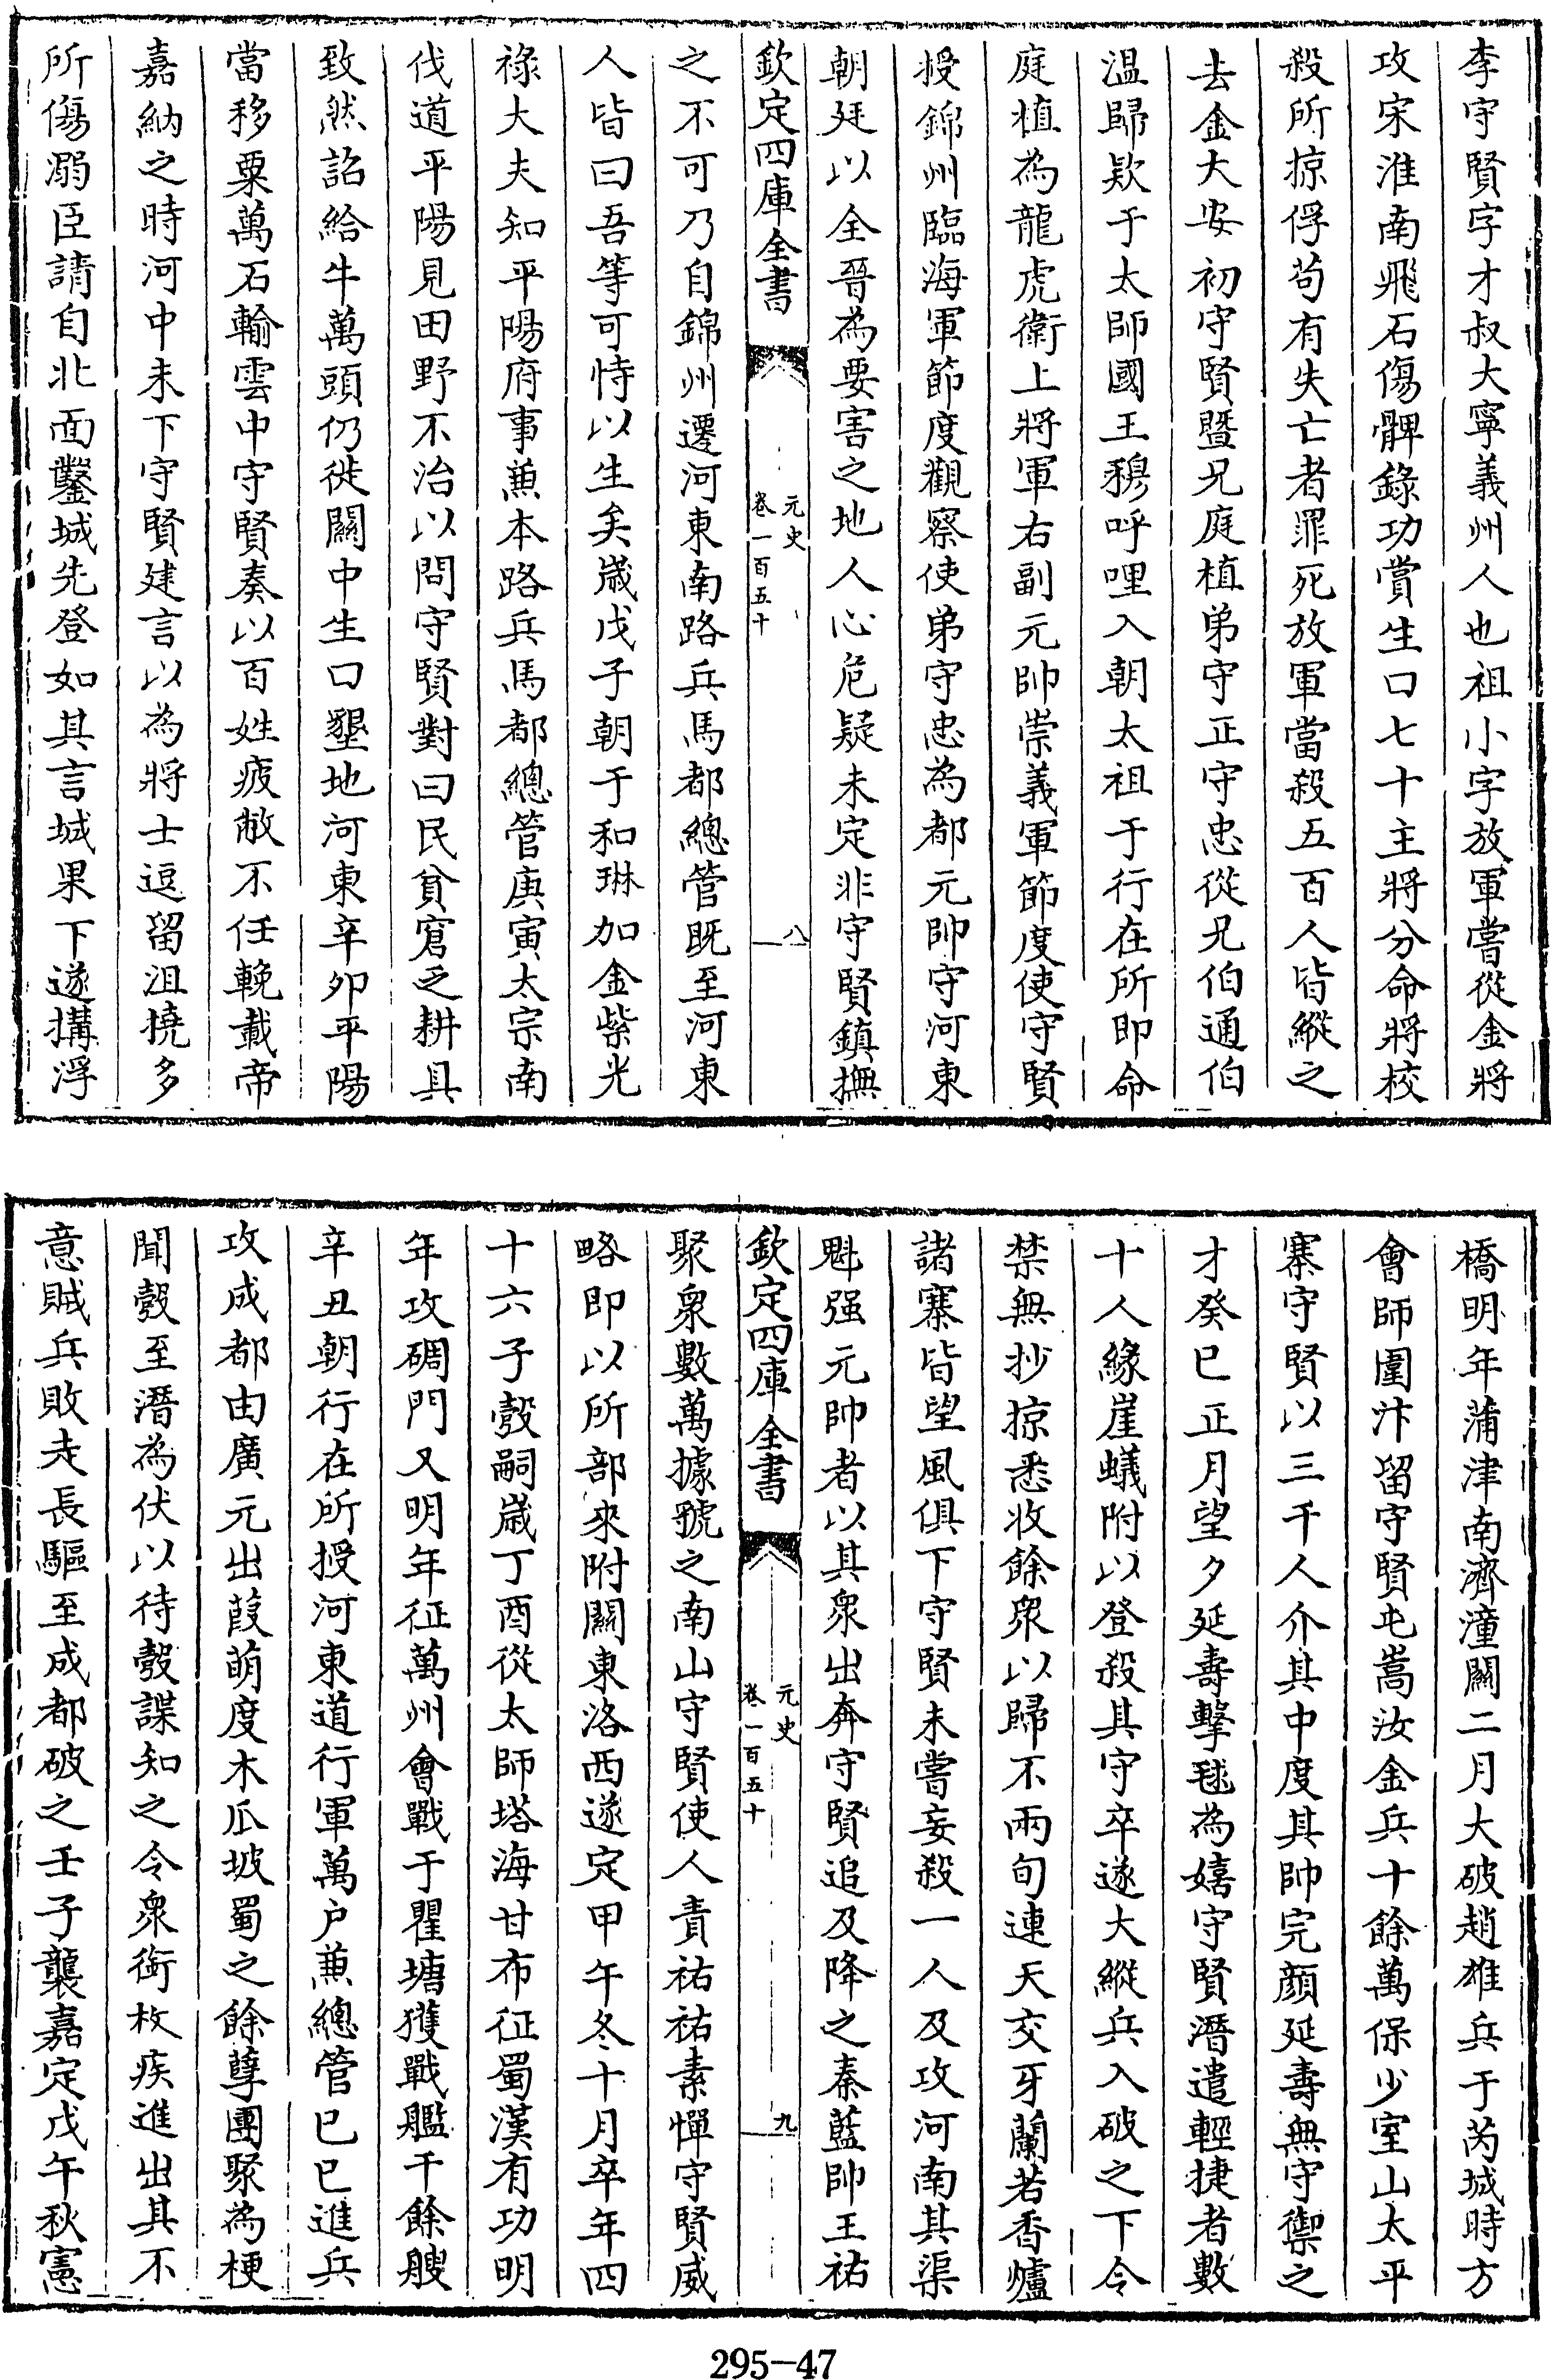 李守賢字才叔大寧義州人也祖小字放軍嘗從金將
攻宋淮南飛石傷髀錄功賞生口七十主將分命將校
殺所掠俘苟有失亡者罪死放軍當殺五百人皆縱之
去金大安初守賢暨兄庭植弟守正守忠從兄伯通伯
温歸欵于太師國王穆呼哩入朝太祖于行在所即命
庭植為龍虎衛上將軍右副元帥崇義軍節度使守賢
授錦州臨海軍節度觀察使弟守忠為都元帥守河東
朝廷以全晉為要害之地人心危疑未定非守賢鎮撫
欽定四庫全書
元史
卷一百五十
八
之不可乃自錦州遷河東南路兵馬都總管既至河東
人皆曰吾等可恃以生矣歲戊子朝于和琳加金紫光
祿大夫知平陽府事兼本路兵馬都總管庚寅太宗南
伐道平陽見田野不治以問守賢對曰民貧窘乏耕具
致然詔給牛萬頭仍徙關中生口墾地河東辛卯平陽
當移粟萬石輸雲中守賢奏以百姓疲敝不任輓載帝
嘉納之時河中未下守賢建言以為將士逗留沮撓多
所傷溺臣請自北面鑿城先登如其言城果下遂搆浮
橋明年蒲津南濟潼關二月大破趙雄兵于芮城時方
會師圍汴留守賢屯嵩汝金兵十餘萬保少室山太平
寨守賢以三千人介其中度其帥完顔延壽無守禦之
才癸巳正月望夕延壽擊毬為嬉守賢潛遣輕捷者數
十人緣崖蟻附以登殺其守卒遂大縱兵入破之下令
禁無抄掠悉收餘衆以歸不兩旬連天交牙蘭若香爐
諸寨皆望風俱下守賢未嘗妄殺一人及攻河南其渠
魁强元帥者以其衆出奔守賢追及降之秦藍帥王祐
欽定四庫全書
元史
卷一百五十
九
聚衆數萬據虢之南山守賢使人責祐祐素憚守賢威
略即以所部來附關東洛西遂定甲午冬十月卒年四
十六子彀嗣歲丁酉從太師塔海甘布征蜀漢有功明
年攻碉門又明年征萬州會戰于瞿塘獲戰艦千餘艘
辛丑朝行在所授河東道行軍萬户兼總管已巳進兵
攻成都由廣元出葭萌度木瓜坡蜀之餘孽團聚為梗
聞彀至潛為伏以待彀諜知之令衆銜枚疾進出其不
意賊兵敗走長驅至成都破之壬子襲嘉定戊午秋憲
295-47